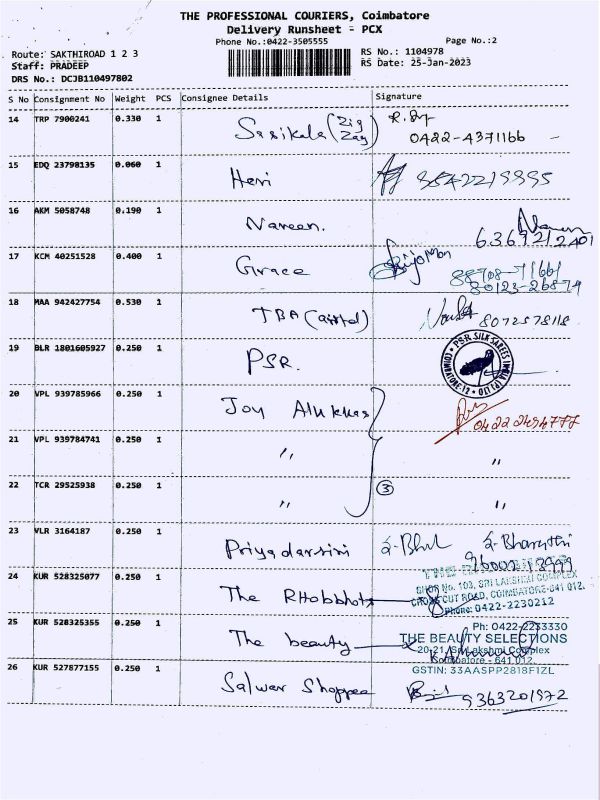 THE PROFESSIONAL COURIERS, Coimbatore
Delivery Runsheet - PCX
Phone No.:0422-3505555 Page No.:2
Route: SAKTHIROAD 1 2 3 RS No.: 1104978
Staff: PRADEEP RS Date: 25-Jan-2023
DRS No.: DCJB110497802
S No Consignment No Weight PCS Consignee Details Signature
14 TRP 7900241 0.330 1 Sasikala (Zig Zag)
0422-4371166
15 EDQ 23798135 0.060 1 Heri
16 AKM 5058748 0.190 1 Naveen.
17 KCM 40251528 0.400 1 Grace
80123-26879
18 MAA 942427754 0.530 1 TBA (airtel) 8072578118
19 BLR 1801605927 0.250 1 PSR.
PSR SILK SAREES INDIA (P) LTD COIMBATORE-12
20 VPL 939785966 0.250 1 Joy Alukkas
21 VPL 939784741 0.250 1 " "
22 TCR 29525938 0.250 1 " "
3
23 VLR 3164187 0.250 1 Priyadarsini
24 KUR 528325077 0.250 1 The
SHOP No. 103, SRI LAKSHMI COMPLEX
CROSS CUT ROAD, COIMBATORE-641 012.
Phone: 0422-2230212
25 KUR 528325355 0.250 1 The beauty
Ph: 0422-2233330
THE BEAUTY SELECTIONS
20-21, Sri Lakshmi Complex
Coimbatore - 641 012.
GSTIN: 33AASPP2818F1ZL
26 KUR 527877155 0.250 1 Salwar Shoppee 9363201972